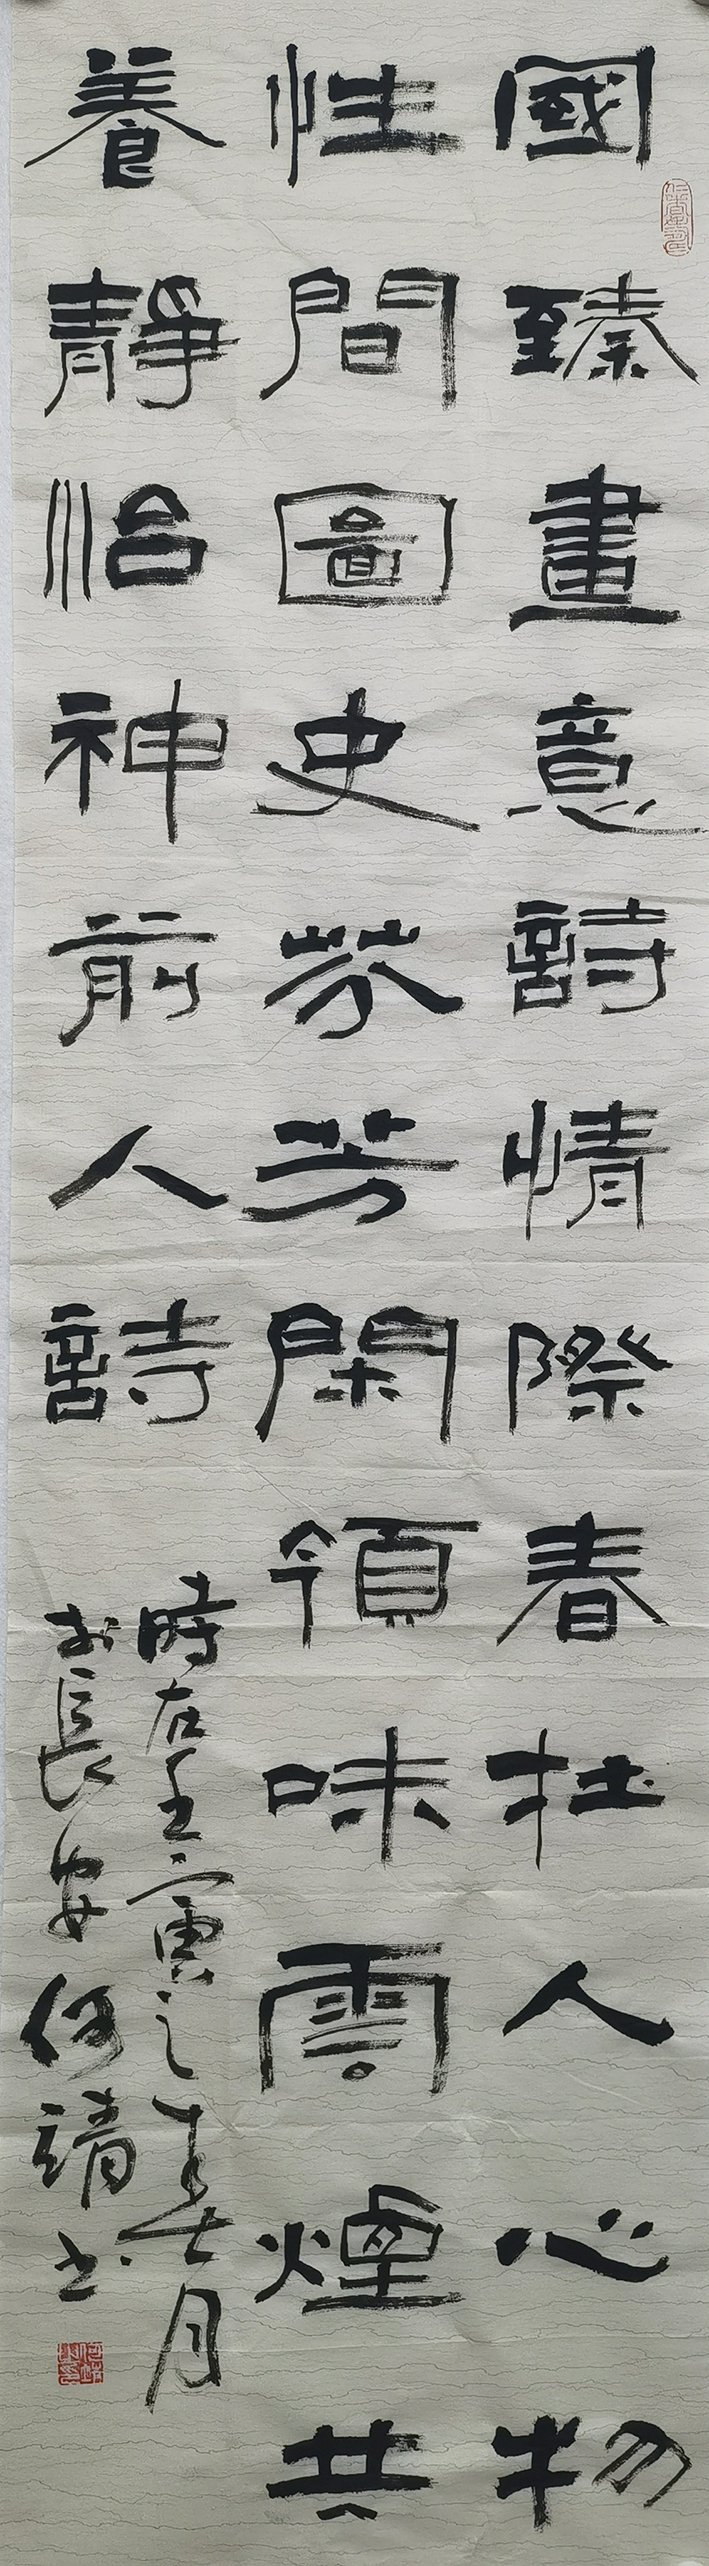 國臻畫意詩情際春杜人心物
性間圖史芬芳閑領味雲煙共
養靜怡神前人詩
時在壬寅之春七月
於長安何靖书